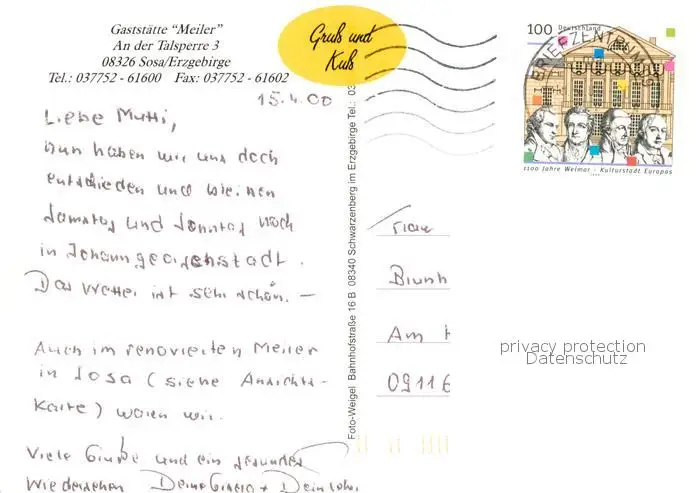 Gaststätte "Meiler"
An der Talsperre 3
08326 Sosa/Erzgebirge
Tel.: 037752 - 61600 Fax: 037752 - 61602
Gruß und
Kuß
15.4.00
Liebe Mutti,
nun haben wir uns doch
entschieden und bleiben
Samstag und Sonntag noch
in Johanngeorgenstadt.
Das Wetter ist sehr schön. —
Auch im renovierten Meiler
in Sosa (siehe Ansichts-
Karte) waren wir.
Viele Grüße und ein gesundes
Wiedersehen Deine + Dein
Foto-Weigel Bahnhofstraße 16 B 08340 Schwarzenberg im Erzgebirge Tel.: 03
100 Deutschland
BRIEFZENTRUM
1100 Jahre Weimar - Kulturstadt Europas
Frau
Brunh
Am
09116
privacy protection
Datenschutz